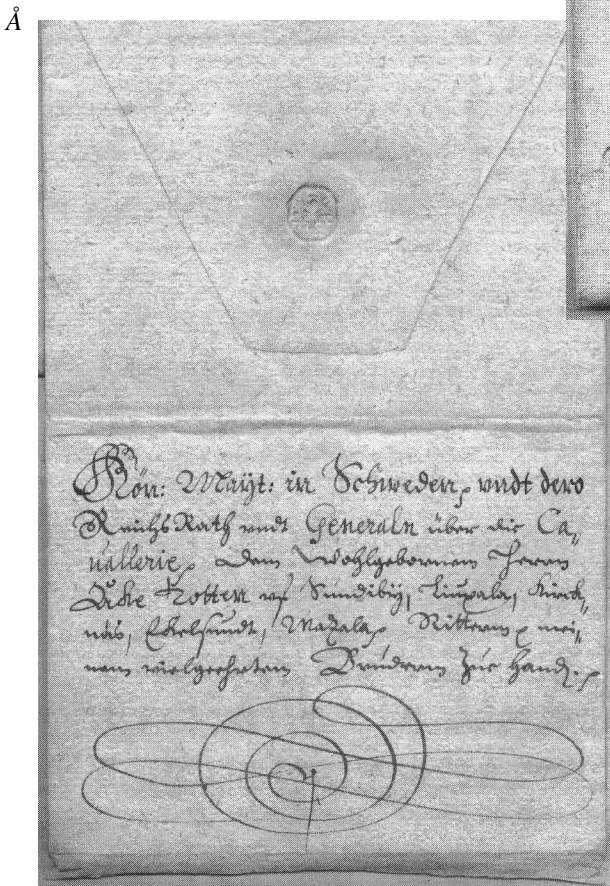 Å
Kön: Maÿt: in Schweden, vndt dero
ReichsRath vndt Generaln über die Ca„
uallerie, Dem Wohlgebornem Herrn
Äcke Totten vf Sundibÿ, Liuxala, Kirck„
näs, Ekelsundt, Mazala, Rittern, mei„
nem vielgeehrtem Brudern Zue Handen.